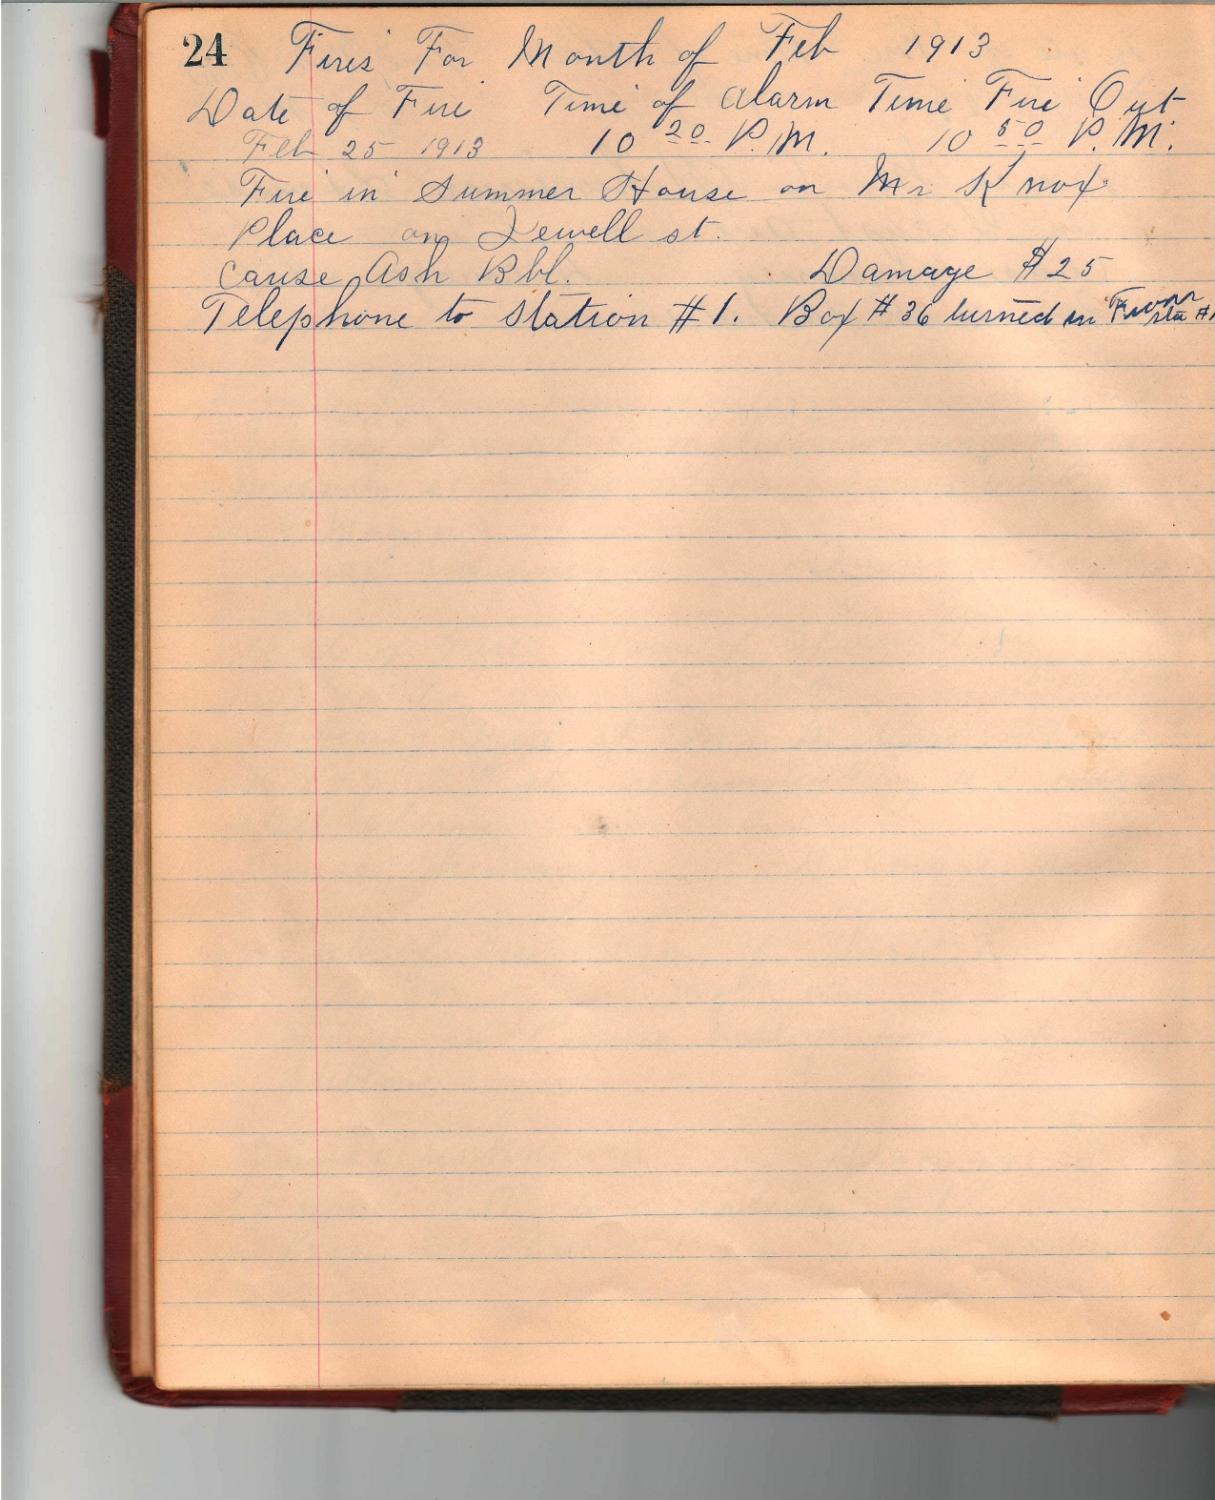 24 Fires For Month of Feb 1913
Date of Fire Time of alarm Time Fire Out
Feb 25 1913 10 20 P.M. 10 50 P.M.
Fire in Summer House on Mr Knox
Place on Jewell st.
Cause Ash Bbl. Damage $25
Telephone to Station #1. Box #36 turned in From
sta #1